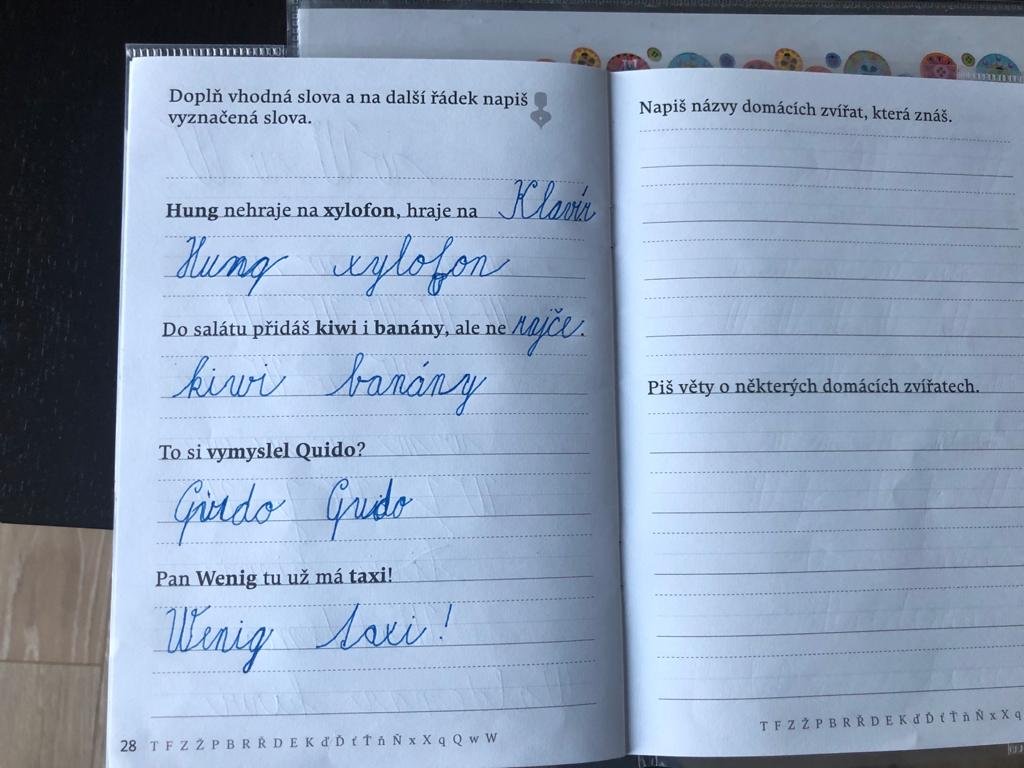 Doplň vhodná slova a na další řádek napiš
vyznačená slova.
Hung nehraje na xylofon, hraje na Klavír
Hung xylofon
Do salátu přidáš kiwi i banány, ale ne rajče.
kiwi banány
To si vymyslel Quido?
Guido Guido
Pan Wenig tu už má taxi!
Wenig taxi!
28 T F Z Ž P B R Ř D E K ď Ď ť Ť ň Ň x X q Q w W
Napiš názvy domácích zvířat, která znáš.
Piš věty o některých domácích zvířatech.
T F Z Ž P B R Ř D E K ď Ď ť Ť ň Ň x X q